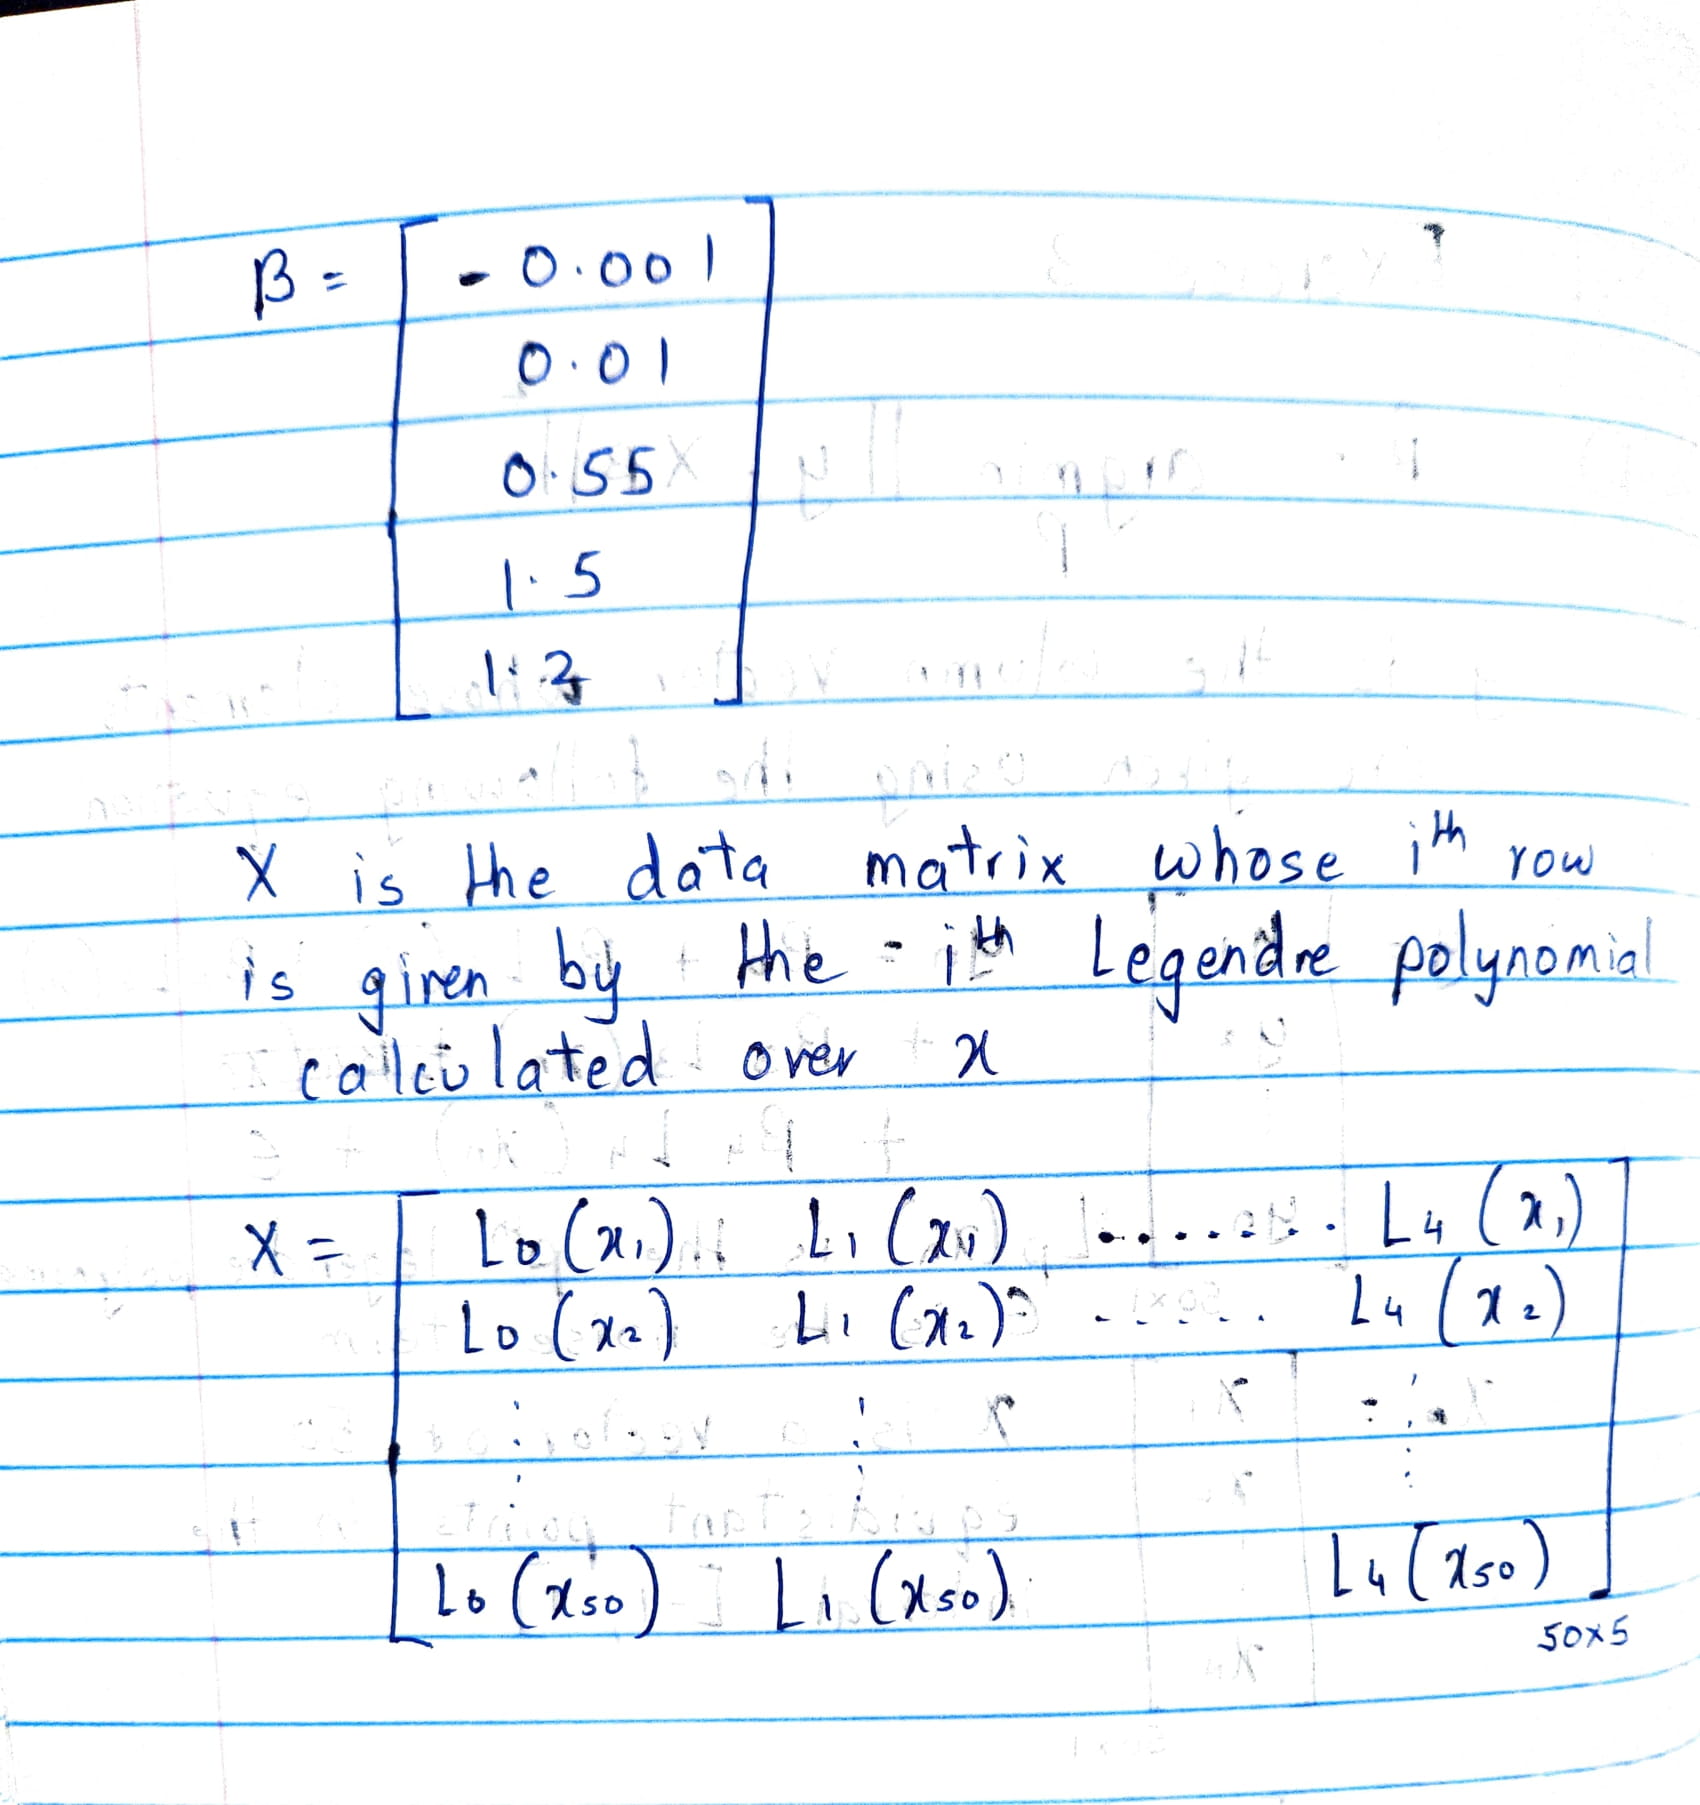 β = - 0.001
0.01
0.55
1.5
1.2
X is the data matrix whose ith row
is given by the - ith Legendre polynomial
calculated over x
X = L0 (x1) L1 (x1) ......... L4 (x1)
L0 (x2) L1 (x2) ...... L4 (x2)
⋮ ⋮ ⋮
L0 (x50) L1 (x50) L4 (x50)
50x5